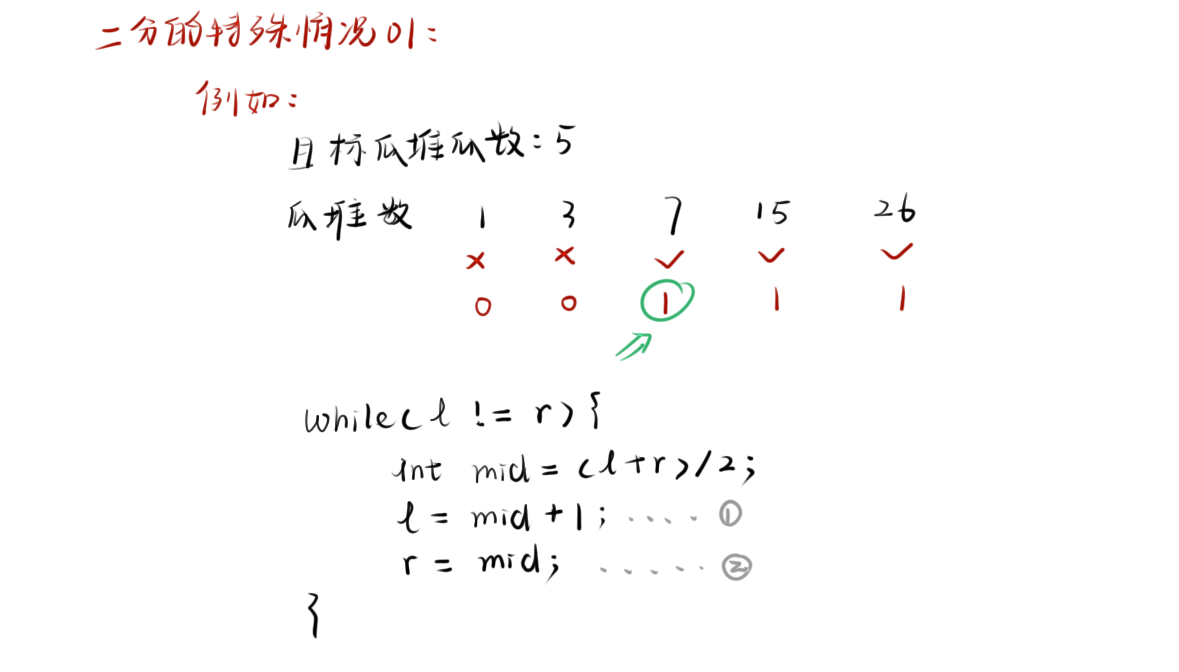 二分的特殊情况01:
例如:
目标瓜堆瓜数:5
瓜堆数 1 3 7 15 26
× × ✓ ✓ ✓
0 0 1 1 1
while(l != r){
int mid = (l+r)/2;
l = mid + 1; .... ①
r = mid; ..... ②
}